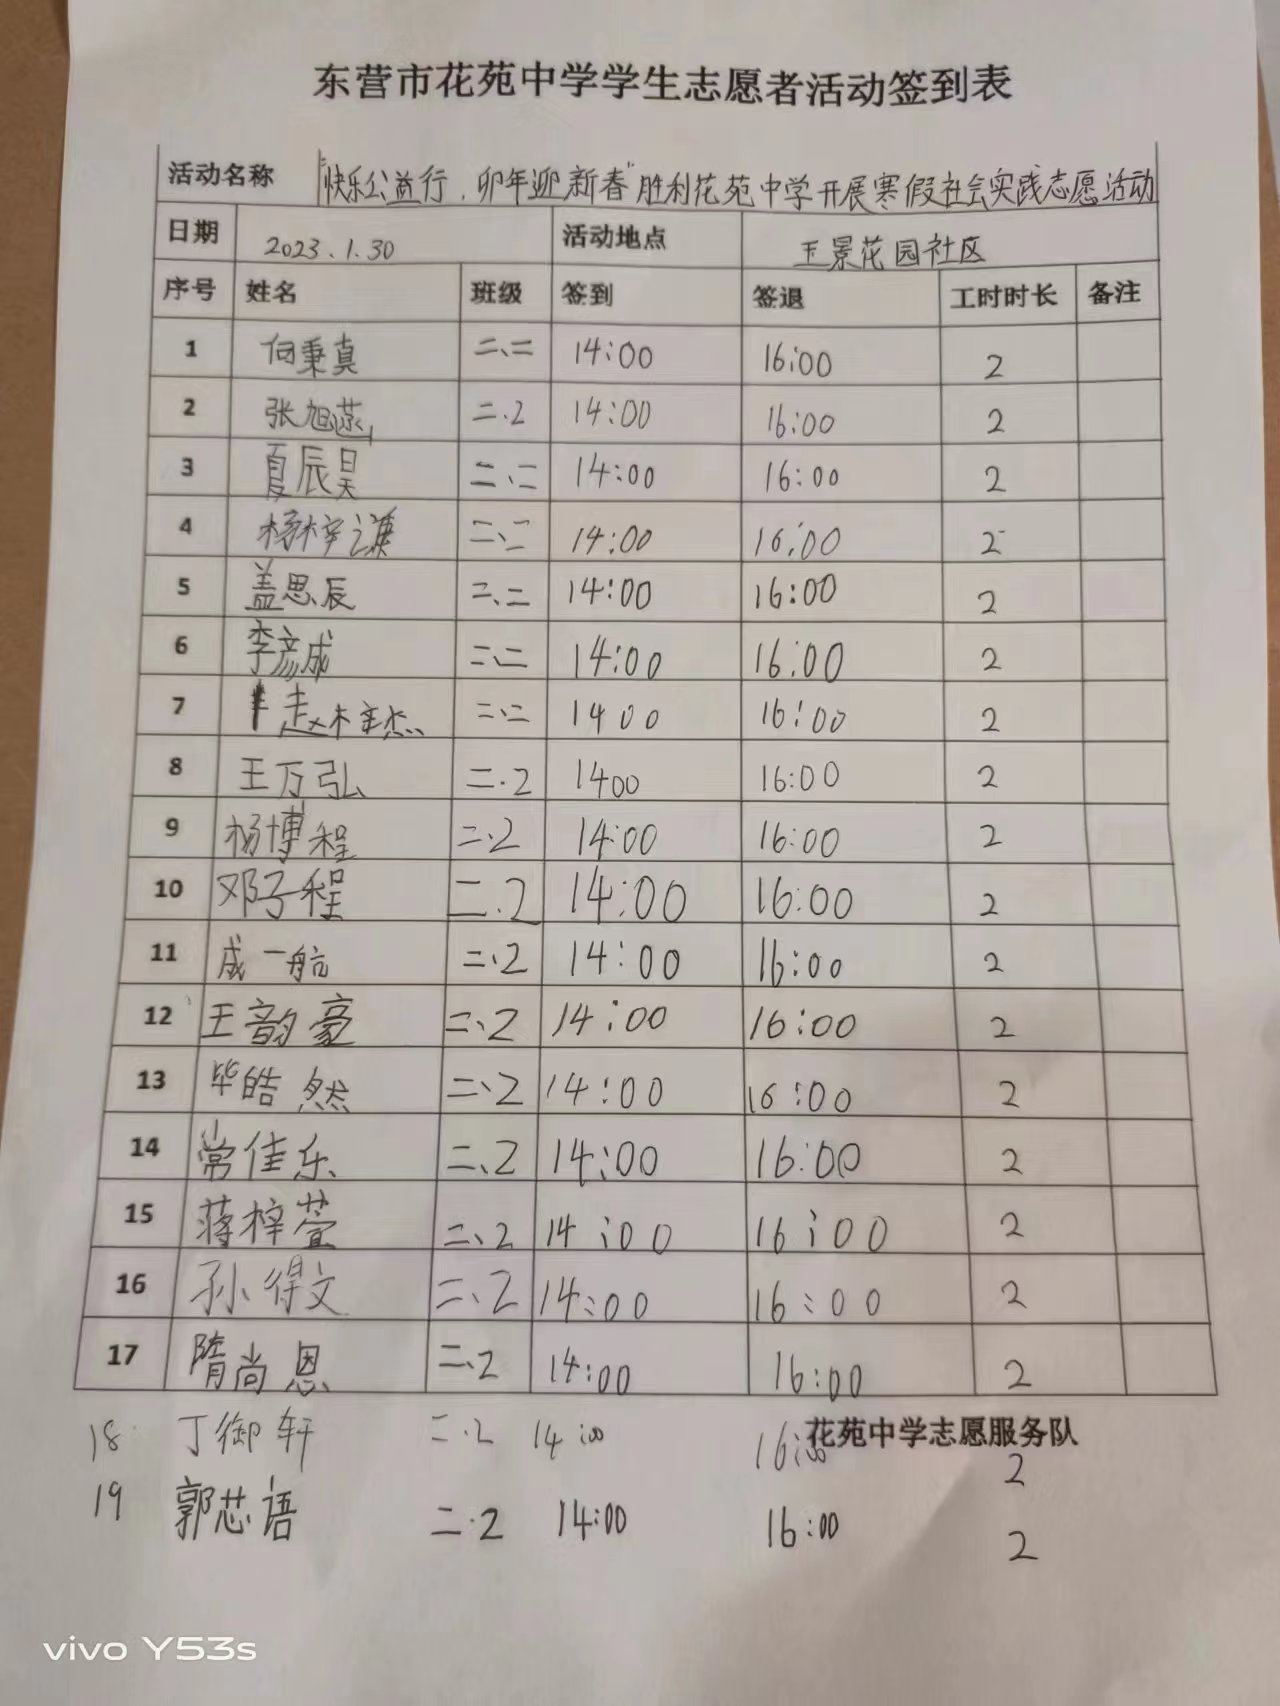 东营市花苑中学学生志愿者活动签到表
活动名称 "快乐公益行,卯年迎新春"胜利花苑中学开展寒假社会实践志愿活动
日期 2023.1.30 活动地点 玉景花园社区
序号 姓名 班级 签到 签退 工时时长 备注
1 向秉真 二、二 14:00 16:00 2
2 张旭 二.2 14:00 16:00 2
3 夏辰昊 二、二 14:00 16:00 2
4 杨梓谦 二、二 14:00 16:00 2
5 盖思辰 二、二 14:00 16:00 2
6 李彦成 二、二 14:00 16:00 2
7 赵梓杰 二、二 14 00 16:00 2
8 王万弘 二.2 1400 16:00 2
9 杨博程 二、2 14:00 16:00 2
10 邓子程 二.2 14:00 16:00 2
11 成一航 二、2 14:00 16:00 2
12 王韵豪 二、2 14:00 16:00 2
13 毕皓然 二、2 14:00 16:00 2
14 常佳乐 二、2 14:00 16:00 2
15 蒋梓萱 二、2 14:00 16:00 2
16 孙得文 二、2 14:00 16:00 2
17 隋尚恩 二、2 14:00 16:00 2
花苑中学志愿服务队
18 丁御轩 二.2 14:00 16:00 2
19 郭芯语 二.2 14:00 16:00 2
vivo Y53s